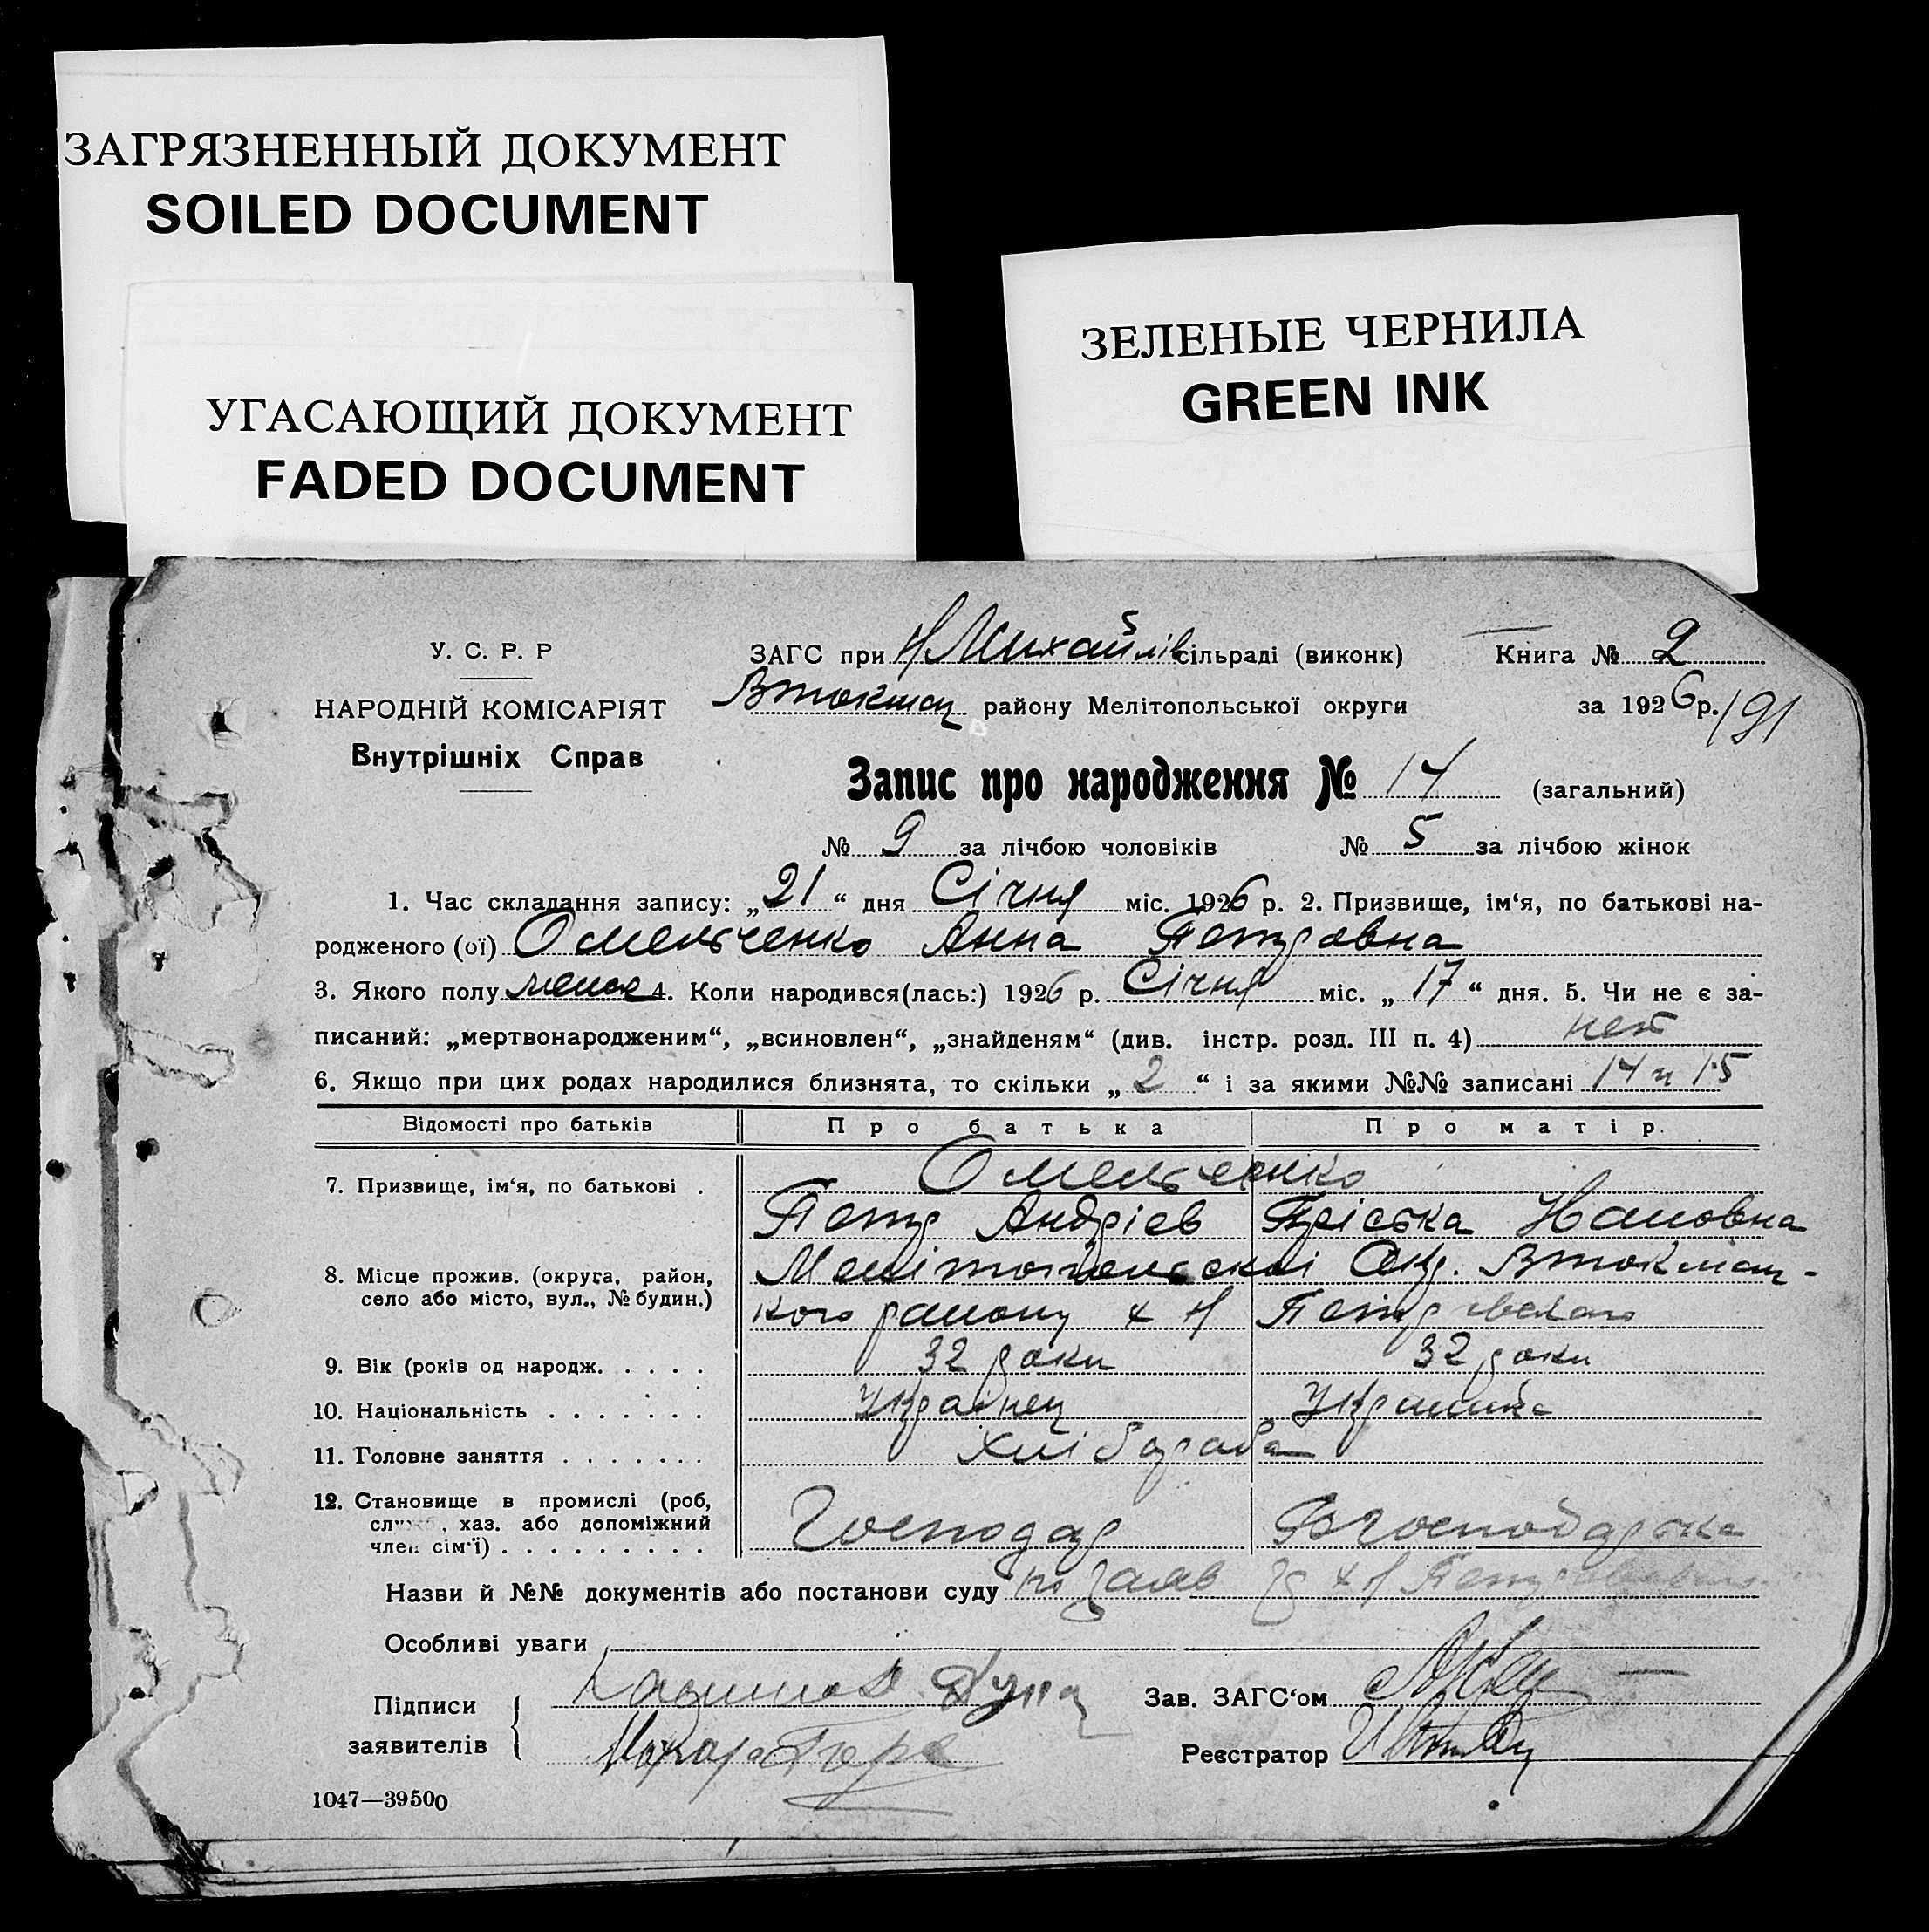 ЗАГРЯЗНЕННЫЙ ДОКУМЕНТ
SOILED DOCUMENT
УГАСАЮЩИЙ ДОКУМЕНТ
FADED DOCUMENT
ЗЕЛЕНЫЕ ЧЕРНИЛА
GREEN INK
У. С. Р. Р
НАРОДНІЙ КОМІСАРІЯТ
Внутрішніх Справ
ЗАГС при Н Михайлів сільраді (виконк) Книга № 2
5
Втокмац району Мелітопольської округи за 1926 р. /91
Запис про народження № 14 (загальний)
№ 9 за лічбою чоловіків № 5 за лічбою жінок
1. Час складання запису: „21“ дня Січня міс. 1926 р. 2. Призвище, ім‘я, по батькові на-
родженого (ої) Омельченко Анна Петровна
3. Якого полу женск 4. Коли народився(лась:) 1926 р. Січня міс. „17“ дня. 5. Чи не є за-
писаний: „мертвонародженим“, „всиновлен“, „знайденям“ (див. інстр. розд. III п. 4) нет
6. Якщо при цих родах народилися близнята, то скільки „2“ і за якими №№ записані 14 и 15
Відомості про батьків Про батька Про матір.
7. Призвище, ім‘я, по батькові . Омельченко
Петр Андріев Пріська Наумовна
8. Місце прожив. (округа, район, Мелітопольскоі Окр. Втокмац-
село або місто, вул., № будин.) кого району х Н Петровского
9. Вік (років од народж. . . . . 32 роки 32 роки
10. Національність . . . . . . . Украінец Украинка
11. Головне заняття . . . . . . . Хлібороба
12. Становище в промислі (роб, Господар Господарка
служб., хаз. або допоміжний
член сім‘ї) . . . . . . . . .
Назви й №№ документів або постанови суду по заяв х Н Петровского
Особливі уваги
Підписи
заявителів
Зав. ЗАГС‘ом
Реєстратор
1047—39500